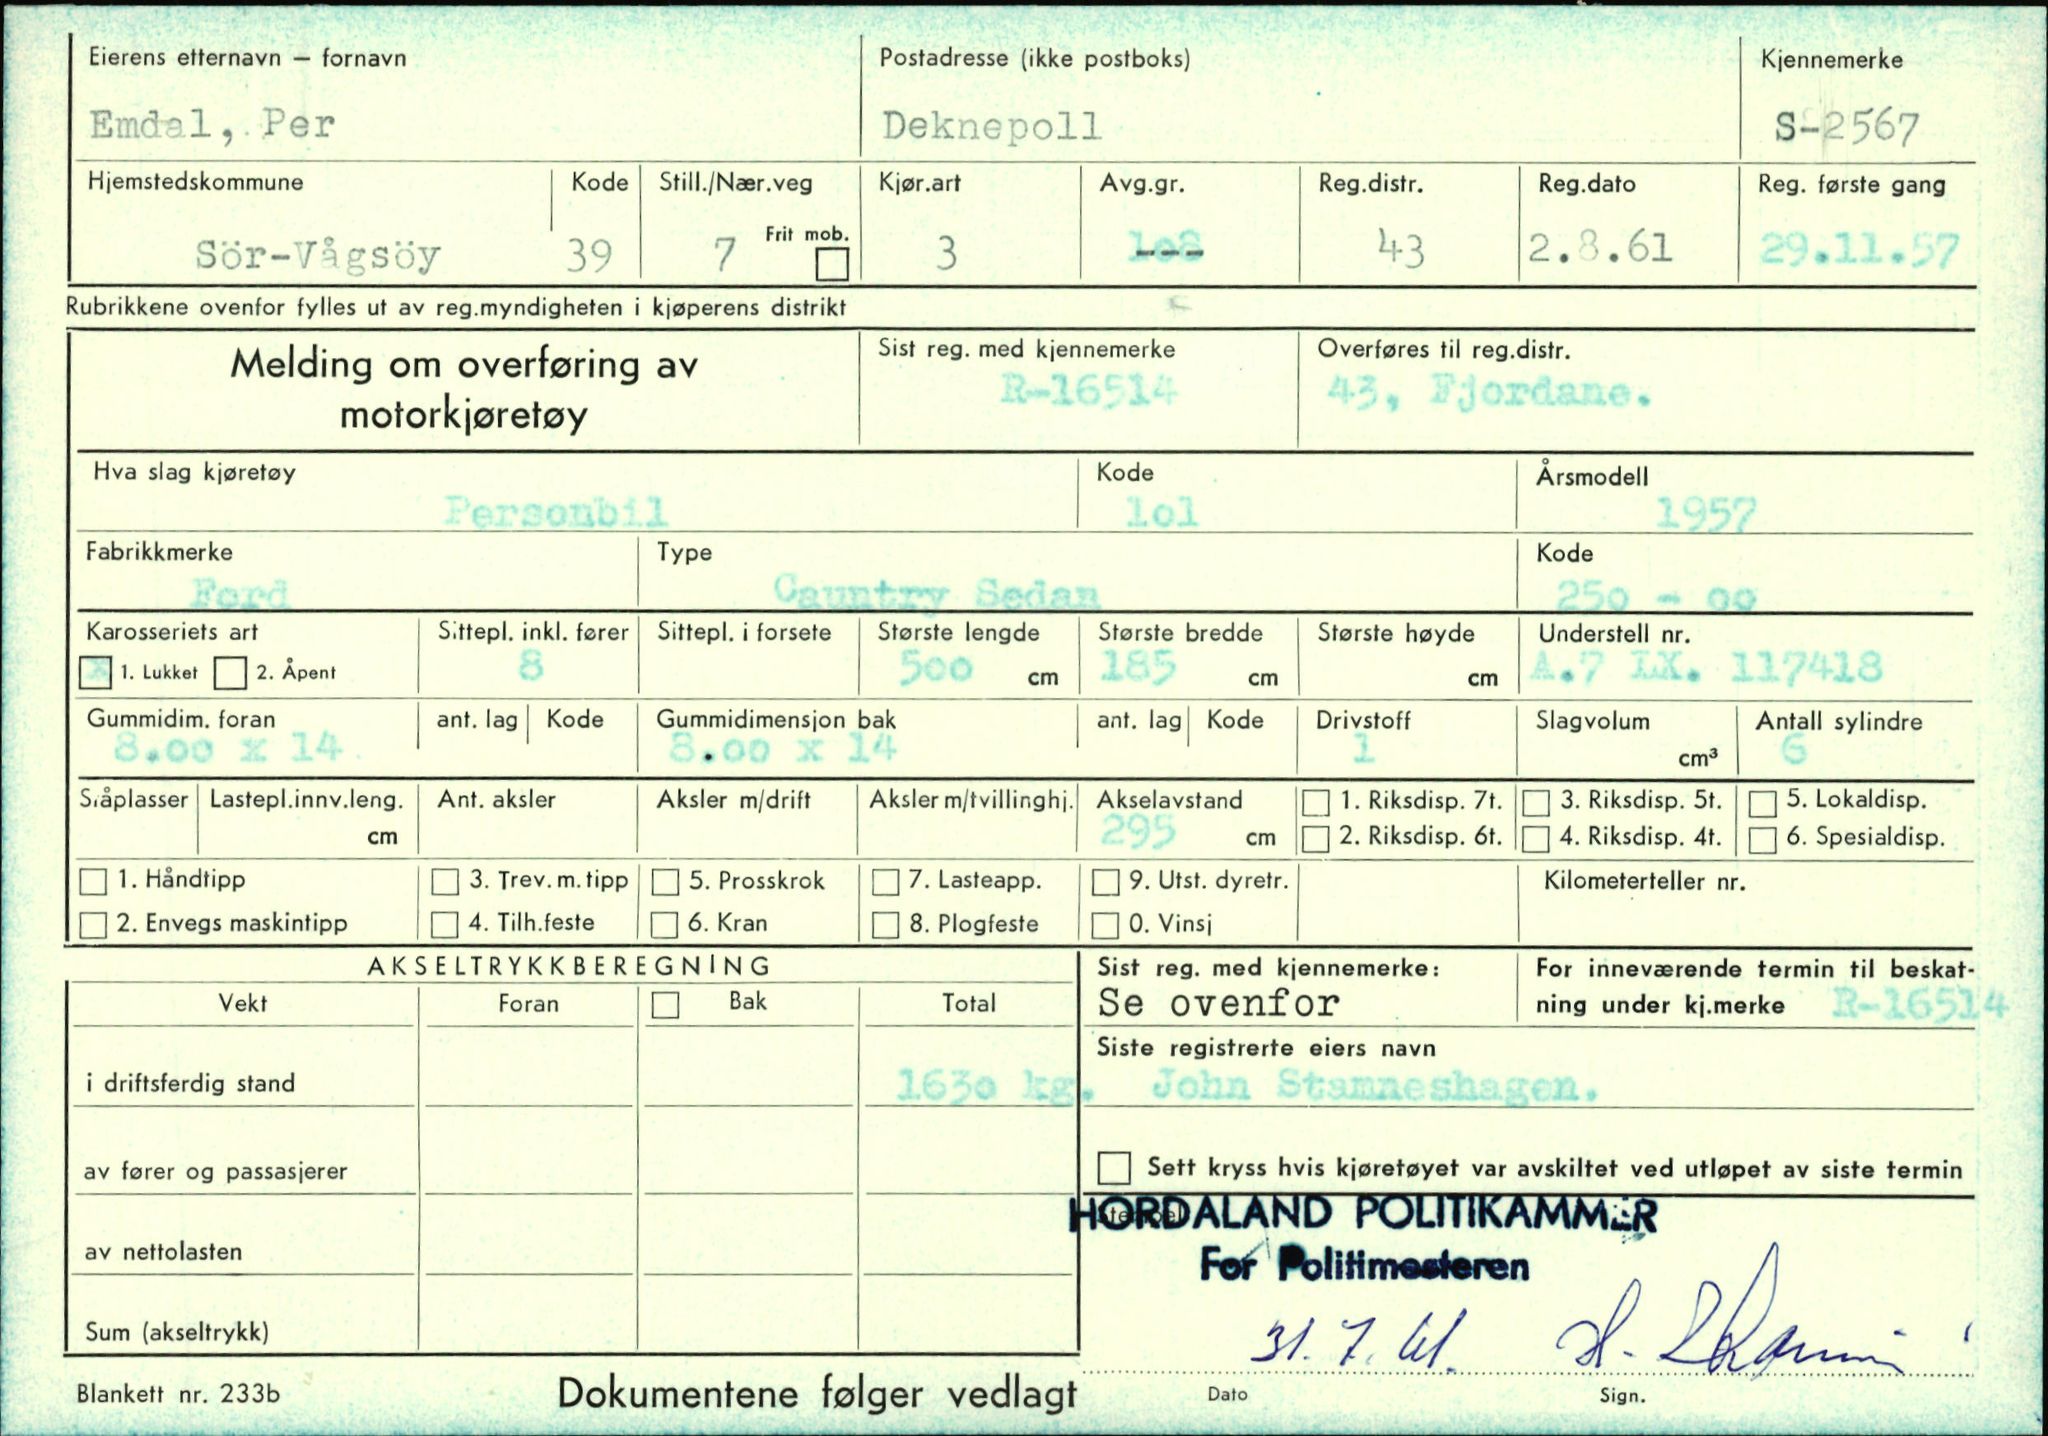 Eierens etternavn — fornavn Postadresse (ikke postboks) Kjennemerke
Emdal, Per Deknepoll S-2567
Hjemstedskommune Kode Still./Nær.veg Kjør.art Avg.gr. Reg.distr. Reg.dato Reg. første gang
Frit mob.
Sör-Vågsöy 39 7 3 108 --- 43 2.8.61 29.11.57
Rubrikkene ovenfor fylles ut av reg.myndigheten i kjøperens distrikt
Melding om overføring av
motorkjøretøy
Sist reg. med kjennemerke Overføres til reg.distr.
R-16514 43, Fjordane.
Hva slag kjøretøy Kode Årsmodell
Personbil lol 1957
Fabrikkmerke Type Kode
Ford Cauntry Sedan 25o - oo
Karosseriets art Sittepl. inkl. fører Sittepl. i forsete Største lengde Største bredde Største høyde Understell nr.
x 1. Lukket 2. Åpent 8 5oo cm 185 cm cm A.7 LX. 117418
Gummidim. foran ant. lag Kode Gummidimensjon bak ant. lag Kode Drivstoff Slagvolum Antall sylindre
8.oo x 14 8.oo x 14 1 cm³ 6
Ståplasser Lastepl.innv.leng. Ant. aksler Aksler m/drift Aksler m/tvillinghj. Akselavstand 1. Riksdisp. 7t. 3. Riksdisp. 5t. 5. Lokaldisp.
cm 295 cm 2. Riksdisp. 6t. 4. Riksdisp. 4t. 6. Spesialdisp.
1. Håndtipp 3. Trev. m. tipp 5. Prosskrok 7. Lasteapp. 9. Utst. dyretr. Kilometerteller nr.
2. Envegs maskintipp 4. Tilh.feste 6. Kran 8. Plogfeste 0. Vinsj
AKSELTRYKKBEREGNING
Vekt Foran Bak Total
i driftsferdig stand 163o kg.
av fører og passasjerer
av nettolasten
Sum (akseltrykk)
Sist reg. med kjennemerke:
Se ovenfor
For inneværende termin til beskat-
ning under kj.merke R-16514
Siste registrerte eiers navn
John Stamneshagen.
Sett kryss hvis kjøretøyet var avskiltet ved utløpet av siste termin
Stempel
HORDALAND POLITIKAMMER
For Politimesteren
31. 7. 61.
Dato Sign.
Blankett nr. 233b Dokumentene følger vedlagt